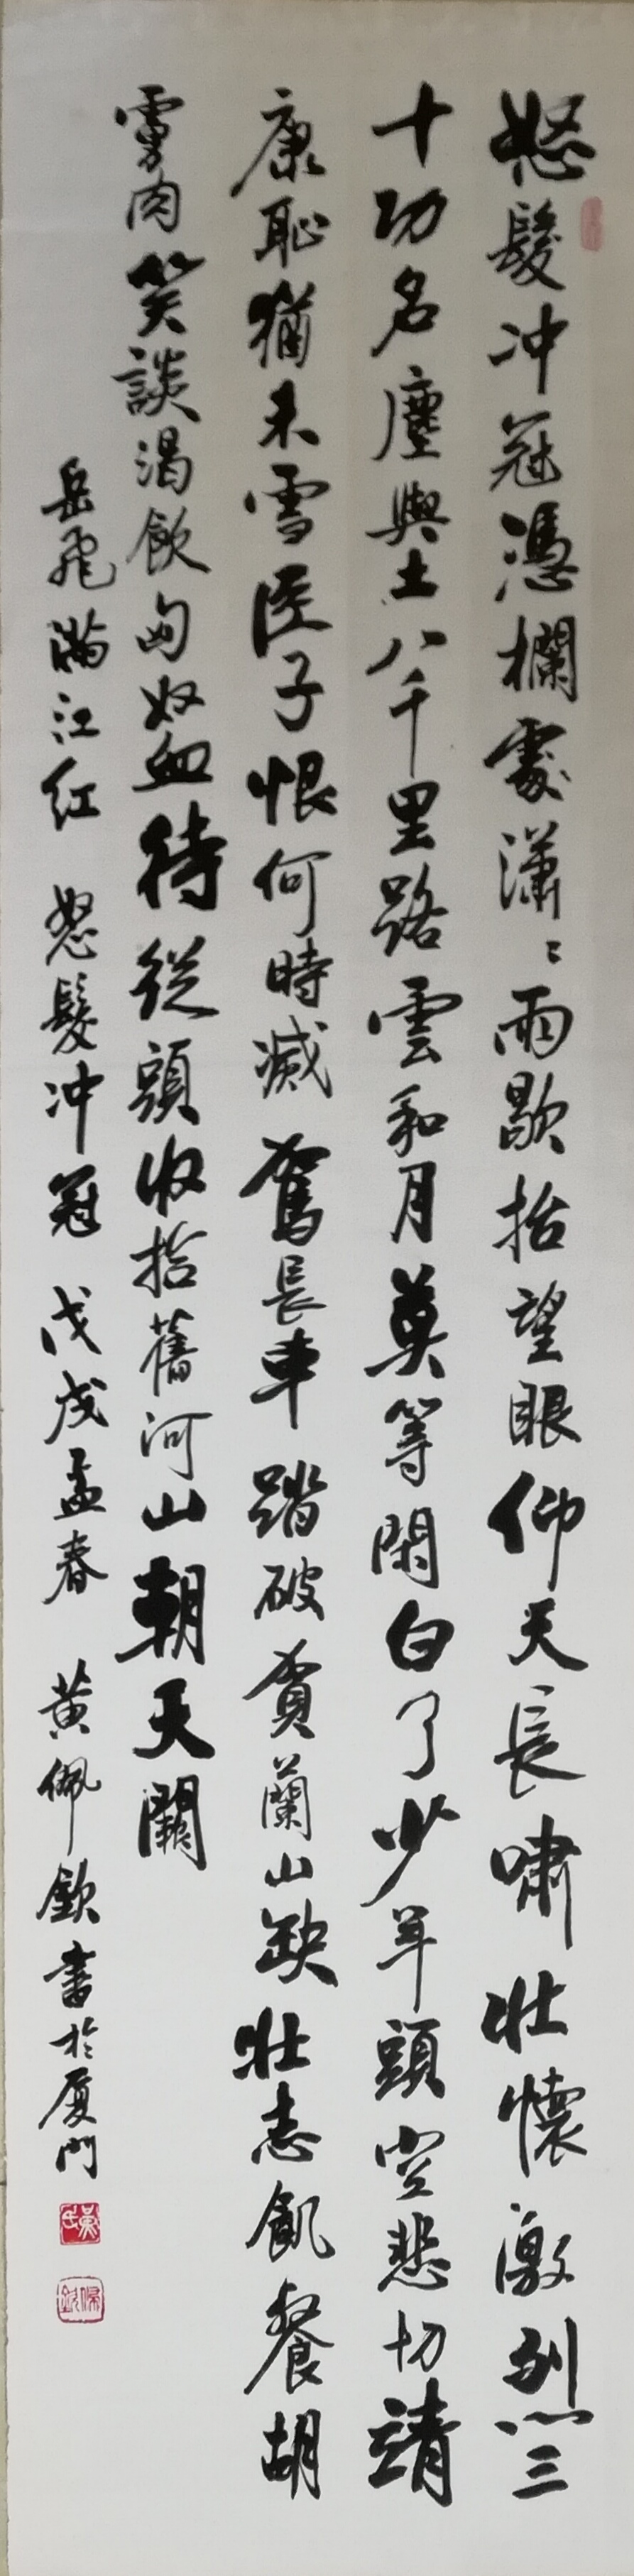 怒髮冲冠憑欄處瀟々雨歇抬望眼仰天長嘯壯懷激烈三
十功名塵與土八千里路雲和月莫等閑白了少年頭空悲切靖
康恥猶未雪臣子恨何時滅奮長車踏破賀蘭山缺壯志飢餐胡
虜肉笑談渴飲匈奴血待從頭收拾舊河山朝天闕
岳飛滿江紅 怒髮冲冠 戊戌孟春 黄佩欽書於厦門
黄氏
佩欽